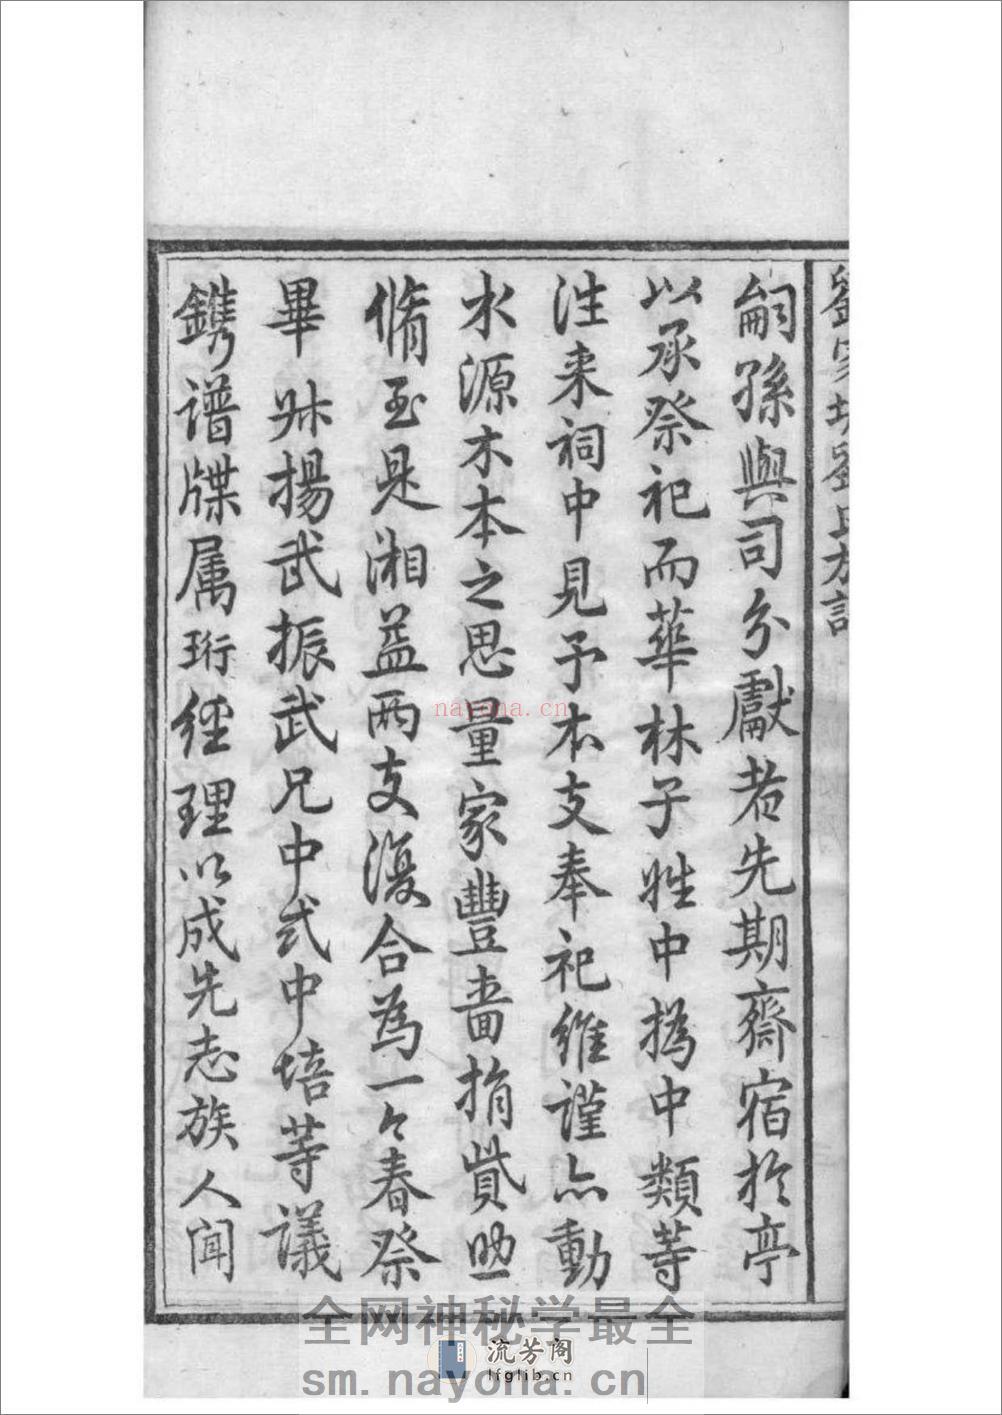 嗣孫與司分獻者先期齋宿於亭
以承祭祀而華林子姓中撝中類等
往来祠中見予本支奉祀維謹亦動
水源木本之思量家豐嗇捐貲助
脩至是湘益兩支復合為一々春祭
畢 叔揚武振武兄中弍中培等議
鐫谱牒属珩經理以成先志族人闻
nayona.cn
全网神秘学最全
流芳阁
lfglib.cn
sm.nayona.cn